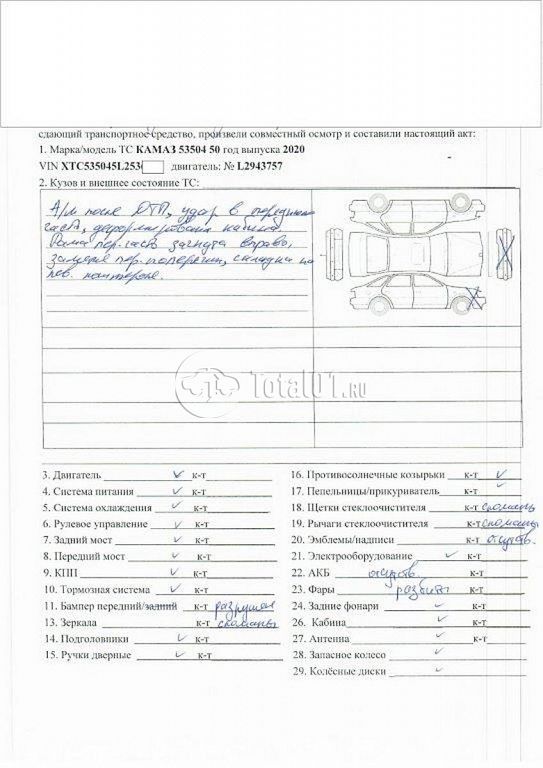 сдающий транспортное средство, произвели совместный осмотр и составили настоящий акт:
1. Марка/модель ТС КАМАЗ 53504 50 год выпуска 2020
VIN XTC535045L253 двигатель: № L2943757
2. Кузов и внешнее состояние ТС:
А/м после ДТП, удар в переднюю
часть, деформирована кабина
Рама пер. часть загнута вправо,
замятие пер. поперечин, складки на
лев. лонжероне.
Total01.RU
3. Двигатель ✓ к-т
4. Система питания ✓ к-т
5. Система охлаждения ✓ к-т
6. Рулевое управление ✓ к-т
7. Задний мост ✓ к-т
8. Передний мост ✓ к-т
9. КПП ✓ к-т
10. Тормозная система ✓ к-т
11. Бампер передний/задний к-т разрушен
13. Зеркала к-т сломаны
14. Подголовники ✓ к-т
15. Ручки дверные ✓ к-т
16. Противосолнечные козырьки к-т ✓
17. Пепельницы/прикуриватель к-т ✓
18. Щетки стеклоочистителя к-т сломаны
19. Рычаги стеклоочистителя к-т сломаны
20. Эмблемы/надписи к-т отсутств.
21. Электрооборудование ✓ к-т
22. АКБ отсутств. к-т
23. Фары разбиты к-т
24. Задние фонари ✓ к-т
26. Кабина ✓ к-т
27. Антенна ✓ к-т
28. Запасное колесо ✓
29. Колёсные диски ✓